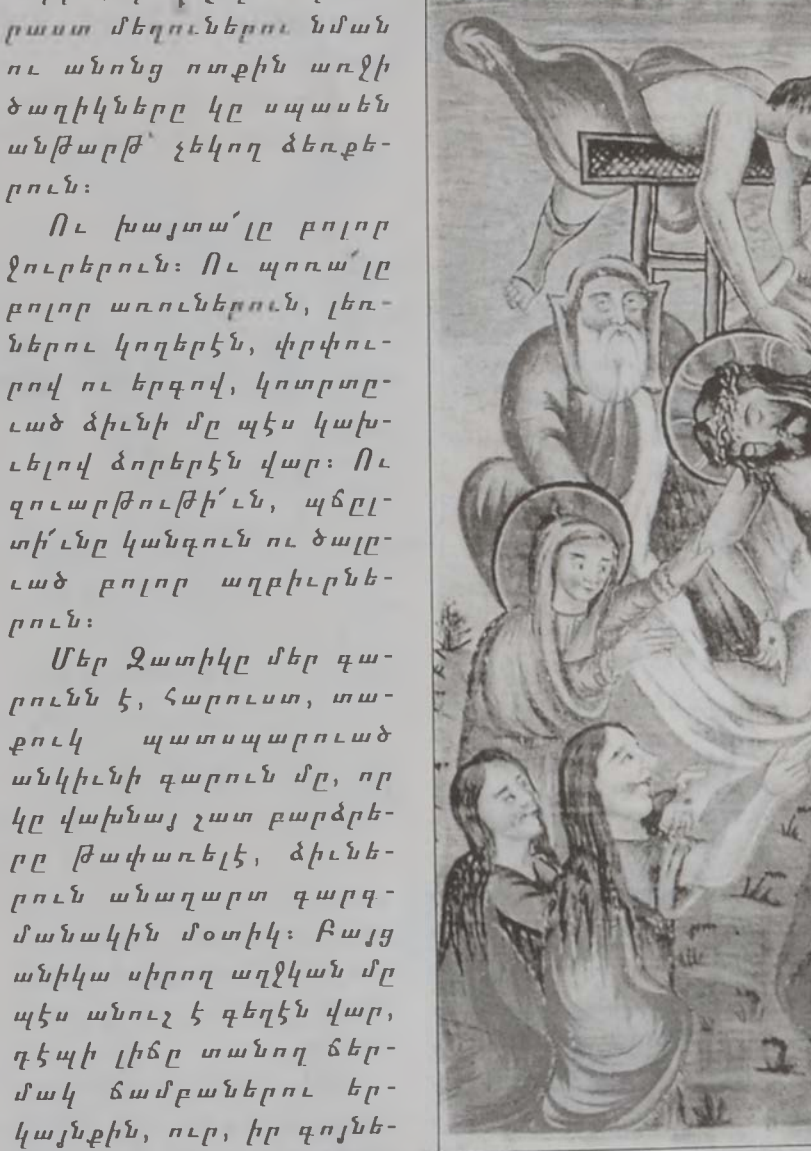 րաստ մեղուներու նման
ու անոնց ոտքին առջի
ծաղիկները կը սպասեն
անթարթ՝ չեկող ձեռքե-
րուն։
Ու խայտա՛լը բոլոր
ջուրերուն։ Ու պոռա՛լը
բոլոր առուներուն, լեռ-
ներու կողերէն, փրփու-
րով ու երգով, կոտրտը-
ւած ձիւնի մը պէս կախ-
ւելով ձորերէն վար։ Ու
զուարթութի՛ւն, պճըլ-
տի՛ւնը կանգուն ու ծալը-
ւած բոլոր աղբիւրնե-
րուն։
Մեր Զատիկը մեր գա-
րունն է, Հարուստ, տա-
քուկ պատսպարուած
անկիւնի գարուն մը, որ
կը վախնայ շատ բարձրե-
րը թափառելէ, ձիւնե-
րուն անաղարտ գարգ-
մանակին մօտիկ։ Բայց
անիկա սիրող աղջկան մը
պէս անուշ է գեղէն վար,
դէպի լիճը տանող ճեր-
մակ ճամբաներու եր-
կայնքին, ուր, իր գոյնե-